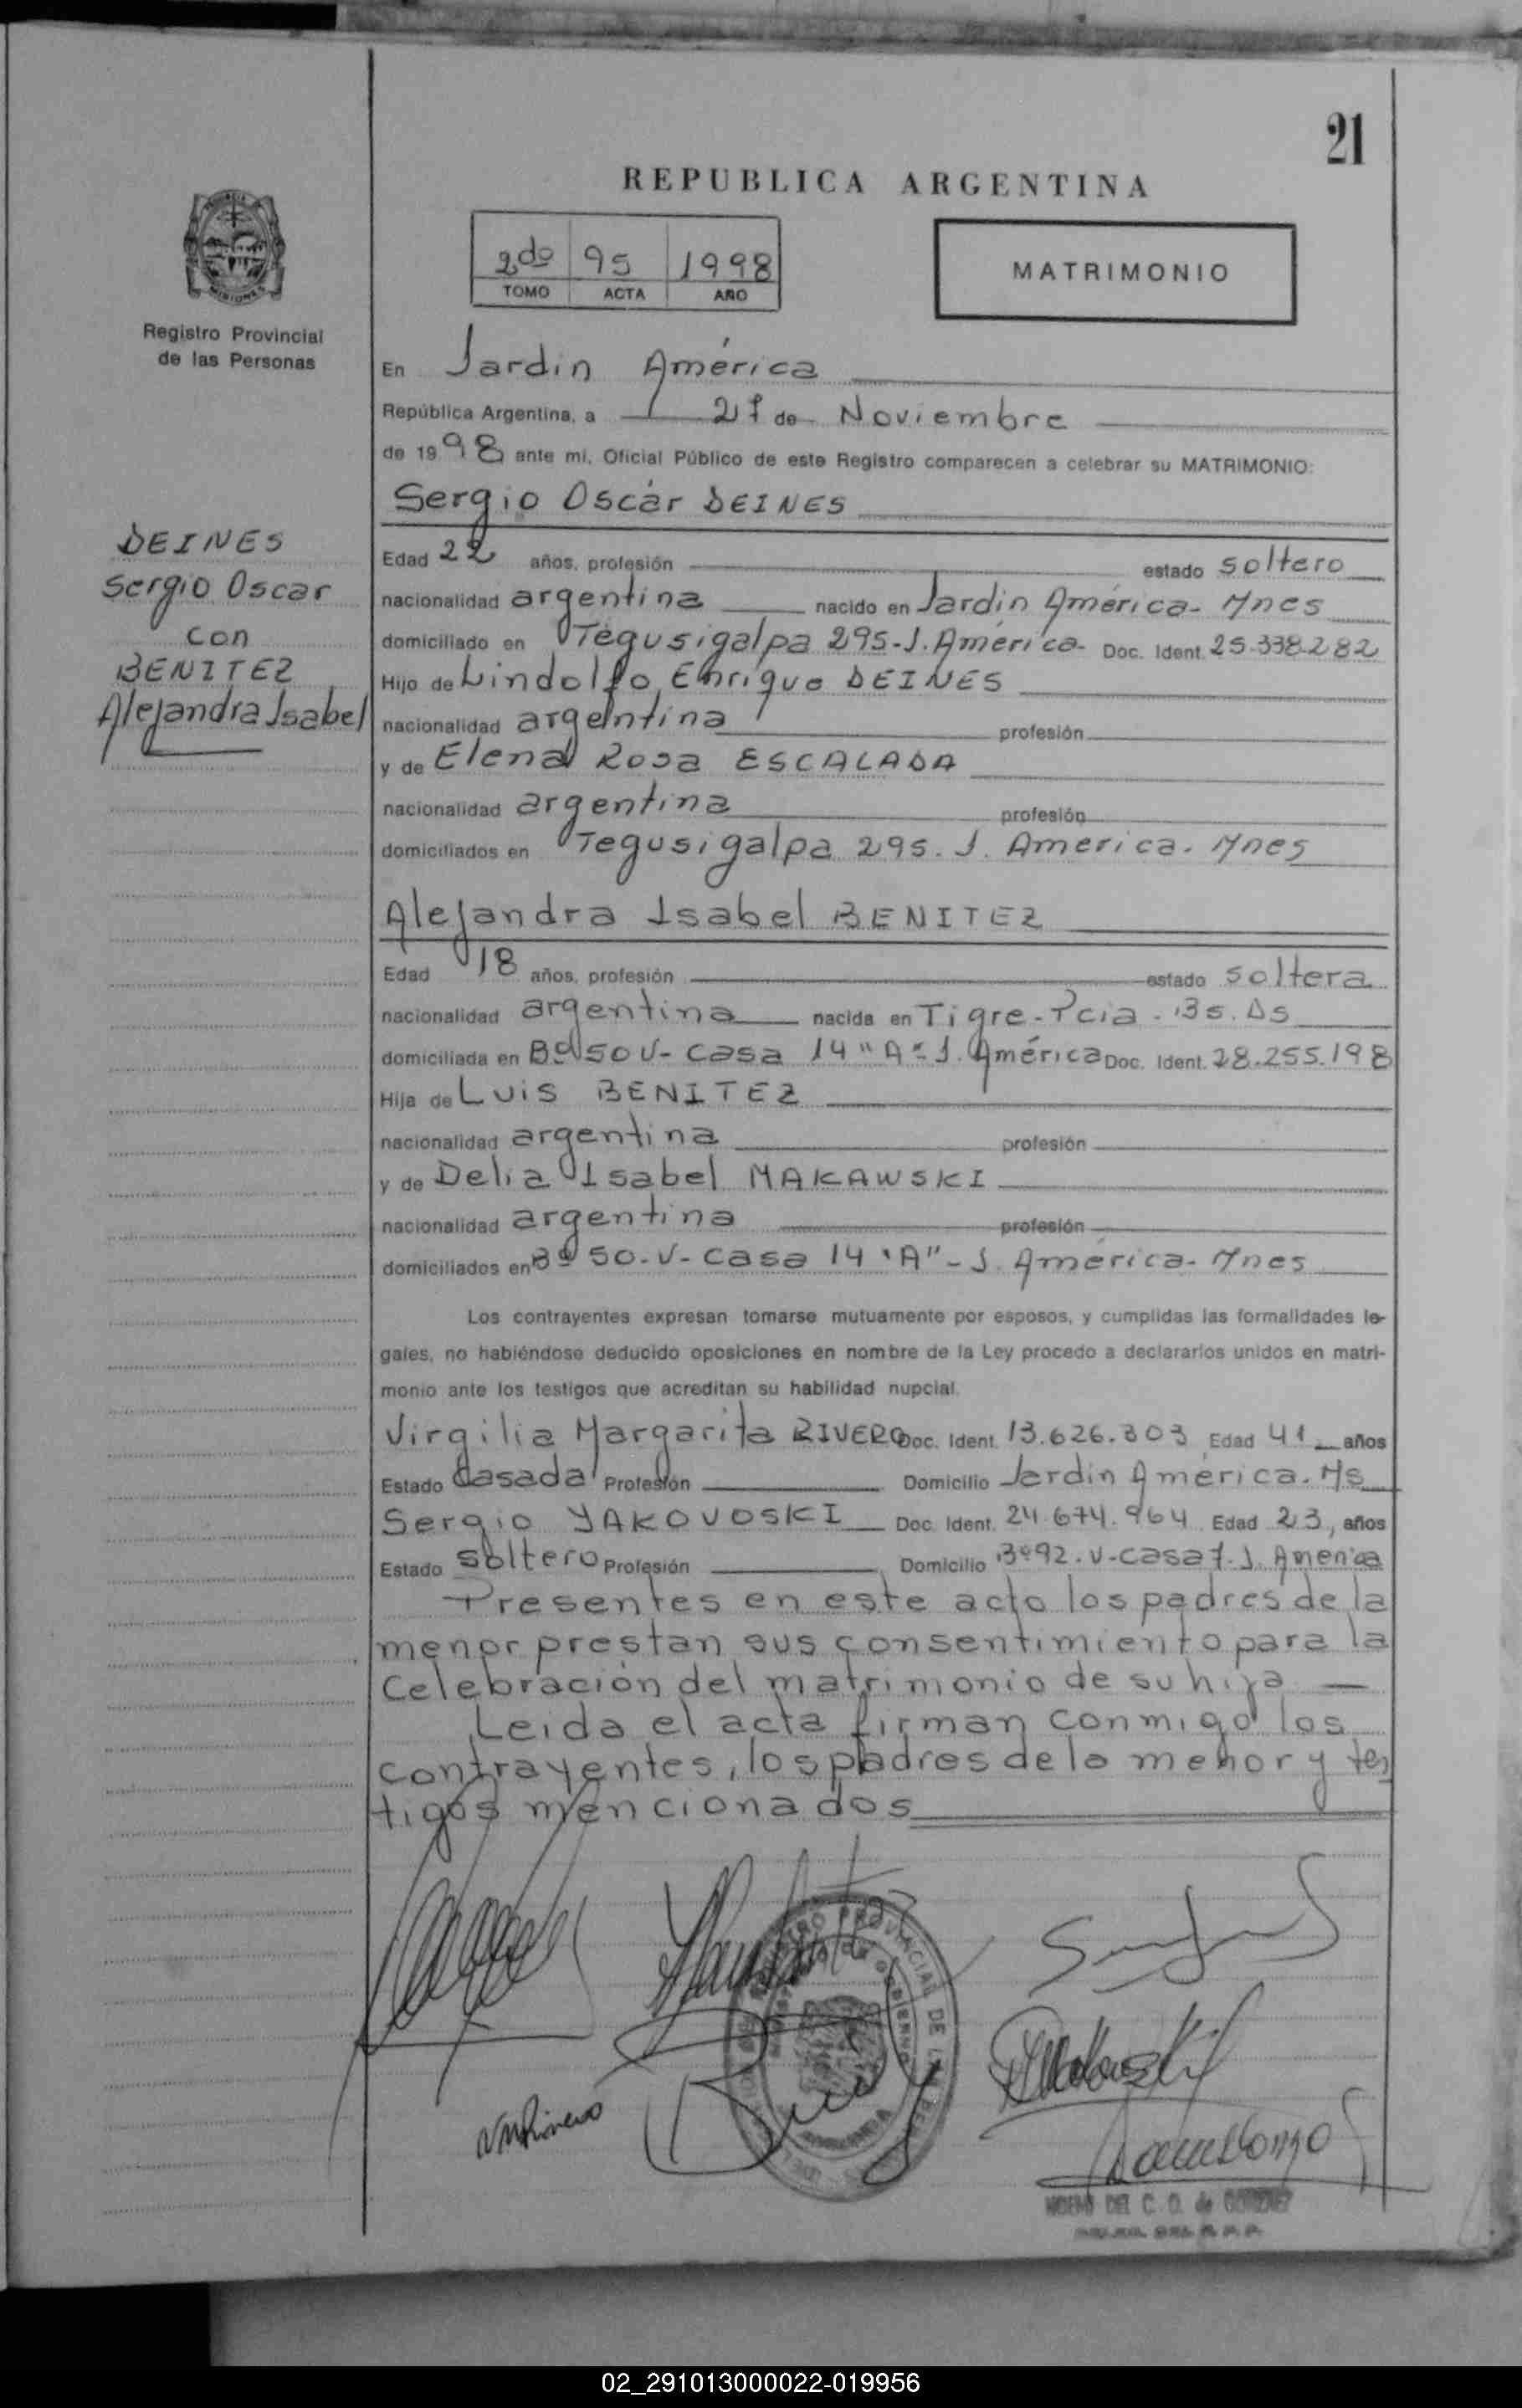 21
REPUBLICA ARGENTINA
2do 95 1998
TOMO ACTA AÑO
MATRIMONIO
Registro Provincial
de las Personas
En Jardin América
República Argentina, a 27 de Noviembre
de 1998 ante mi, Oficial Público de este Registro comparecen a celebrar su MATRIMONIO:
Sergio Oscar DEINES
DEINES
Sergio Oscar
con
BENITEZ
Alejandra Isabel
Edad 22 años, profesión estado soltero
nacionalidad argentina nacido en Jardin América- Mnes
domiciliado en Tegusigalpa 295-J. América- Doc. Ident. 25.338.282
Hijo de Lindolfo Enrique DEINES
nacionalidad argentina profesión
y de Elena Rosa ESCALADA
nacionalidad argentina profesión
domiciliados en Tegusigalpa 295. J. America. Mnes
Alejandra Isabel BENITEZ
Edad 18 años, profesión estado soltera
nacionalidad argentina nacida en Tigre-Pcia. Bs. As
domiciliada en Bº 50 V- Casa 14 "A"-J. América Doc. Ident. 28.255.198
Hija de Luis BENITEZ
nacionalidad argentina profesión
y de Delia Isabel MAKAWSKI
nacionalidad argentina profesión
domiciliados en Bº 50-V- Casa 14 "A"- J. América- Mnes
Los contrayentes expresan tomarse mutuamente por esposos, y cumplidas las formalidades le-
gales, no habiéndose deducido oposiciones en nombre de la Ley procedo a declararlos unidos en matri-
monio ante los testigos que acreditan su habilidad nupcial.
Virgilia Margarita RIVERO Doc. Ident. 13.626.303 Edad 41 años
Estado Casada Profesión Domicilio Jardin América. Ms
Sergio YAKOVOSKI Doc. Ident. 24.674.964 Edad 23, años
Estado soltero Profesión Domicilio Bº 92. V-casa 7. J. America
Presentes en este acto los padres de la
menor prestan sus consentimiento para la
Celebración del matrimonio de su hija
Leida el acta firman conmigo los
contrayentes, los padres de la menor y tes
tigos mencionados
REGISTRO PROVINCIAL DE LAS
VMRivero
02_291013000022-019956